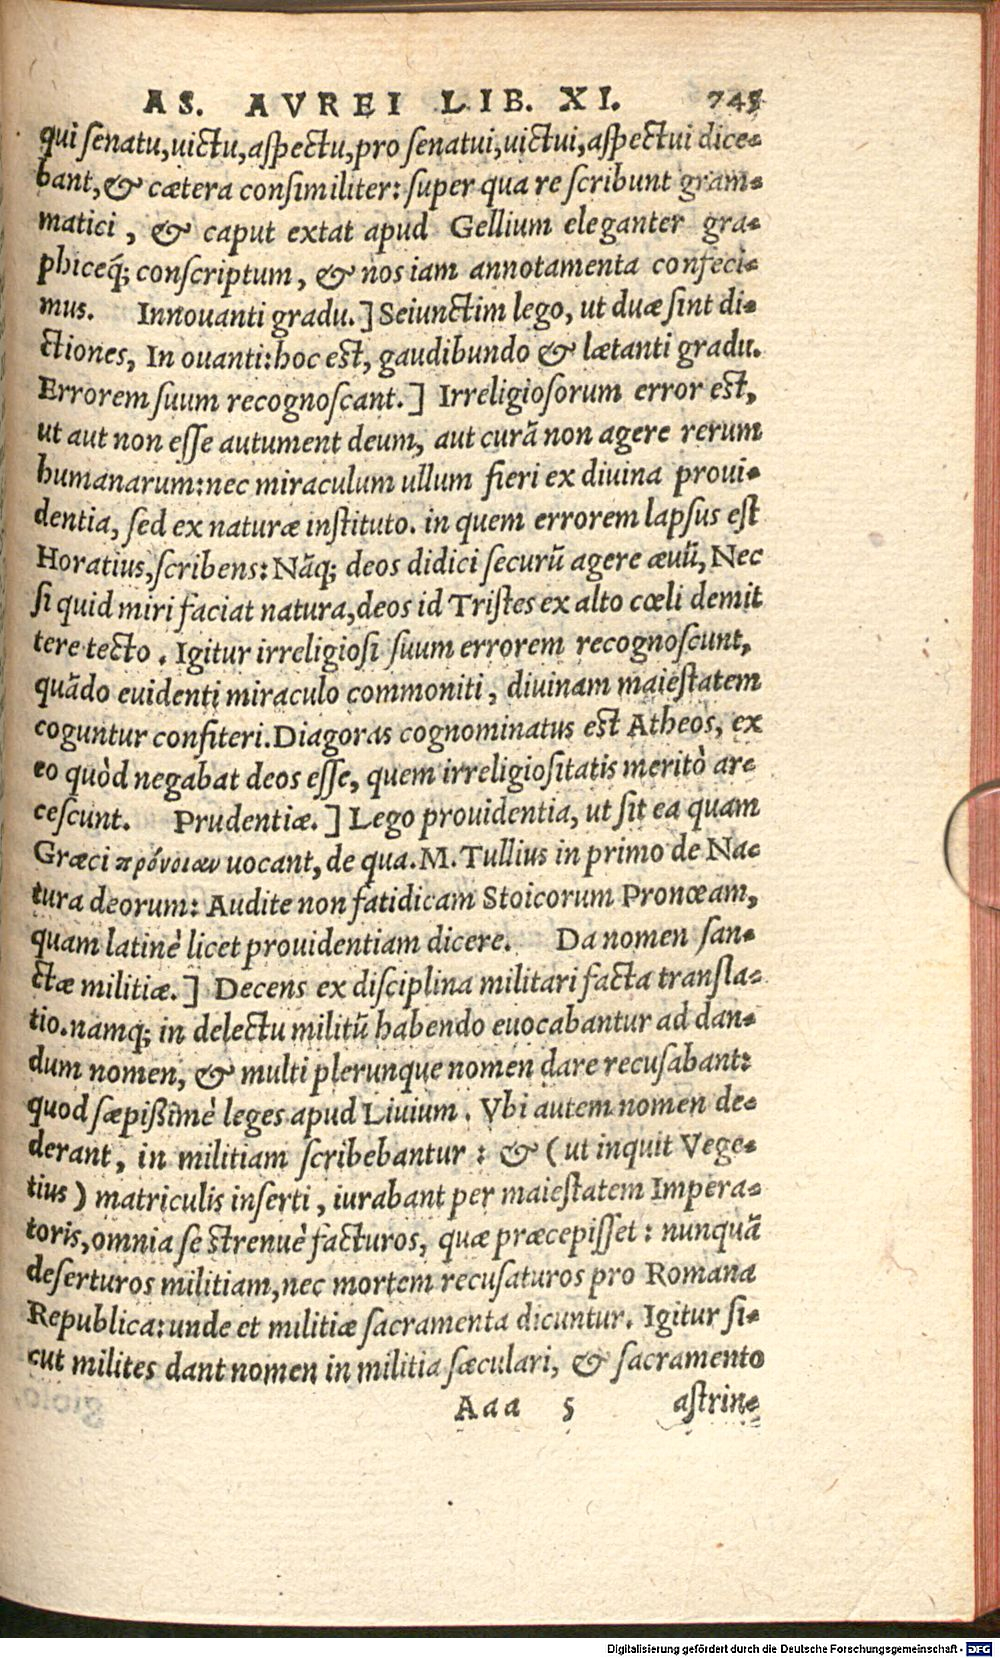 AS. AVREI LIB. XI. 745
qui senatu, uictu, aspectu, pro senatui, uictui, aspectui dice-
bant, & cætera consimiliter: super qua re scribunt gram-
matici, & caput extat apud Gellium eleganter gra-
phiceq́; conscriptum, & nos iam annotamenta confeci-
mus. Innouanti gradu.] Seiunctim lego, ut duæ sint di-
ctiones, In ouanti: hoc est, gaudibundo & lætanti gradu.
Errorem suum recognoscant.] Irreligiosorum error est,
ut aut non esse autument deum, aut curā non agere rerum
humanarum: nec miraculum ullum fieri ex diuina proui-
dentia, sed ex naturæ instituto. in quem errorem lapsus est
Horatius, scribens: Nāq; deos didici securū agere æuū, Nec
si quid miri faciat natura, deos id Tristes ex alto cœli demit
tere tecto. Igitur irreligiosi suum errorem recognoscunt,
quādo euidenti miraculo commoniti, diuinam maiestatem
coguntur confiteri. Diagoras cognominatus est Atheos, ex
eo quòd negabat deos esse, quem irreligiositatis meritò ar-
cescunt. Prudentiæ.] Lego prouidentia, ut sit ea quam
Græci πρόνοιαν uocant, de qua. M. Tullius in primo de Na-
tura deorum: Audite non fatidicam Stoicorum Pronœam,
quam latinè licet prouidentiam dicere. Da nomen san-
ctæ militiæ.] Decens ex disciplina militari facta transla-
tio. namq; in delectu militū habendo euocabantur ad dan-
dum nomen, & multi plerunque nomen dare recusabant:
quod sæpißimè leges apud Liuium. Vbi autem nomen de-
derant, in militiam scribebantur: & (ut inquit Vege-
tius) matriculis inserti, iurabant per maiestatem Impera-
toris, omnia se strenuè facturos, quæ præcepisset: nunquā
deserturos militiam, nec mortem recusaturos pro Romana
Republica: unde et militiæ sacramenta dicuntur. Igitur si-
cut milites dant nomen in militia sæculari, & sacramento
Aaa 5 astrin-
Digitalisierung gefördert durch die Deutsche Forschungsgemeinschaft - DFG